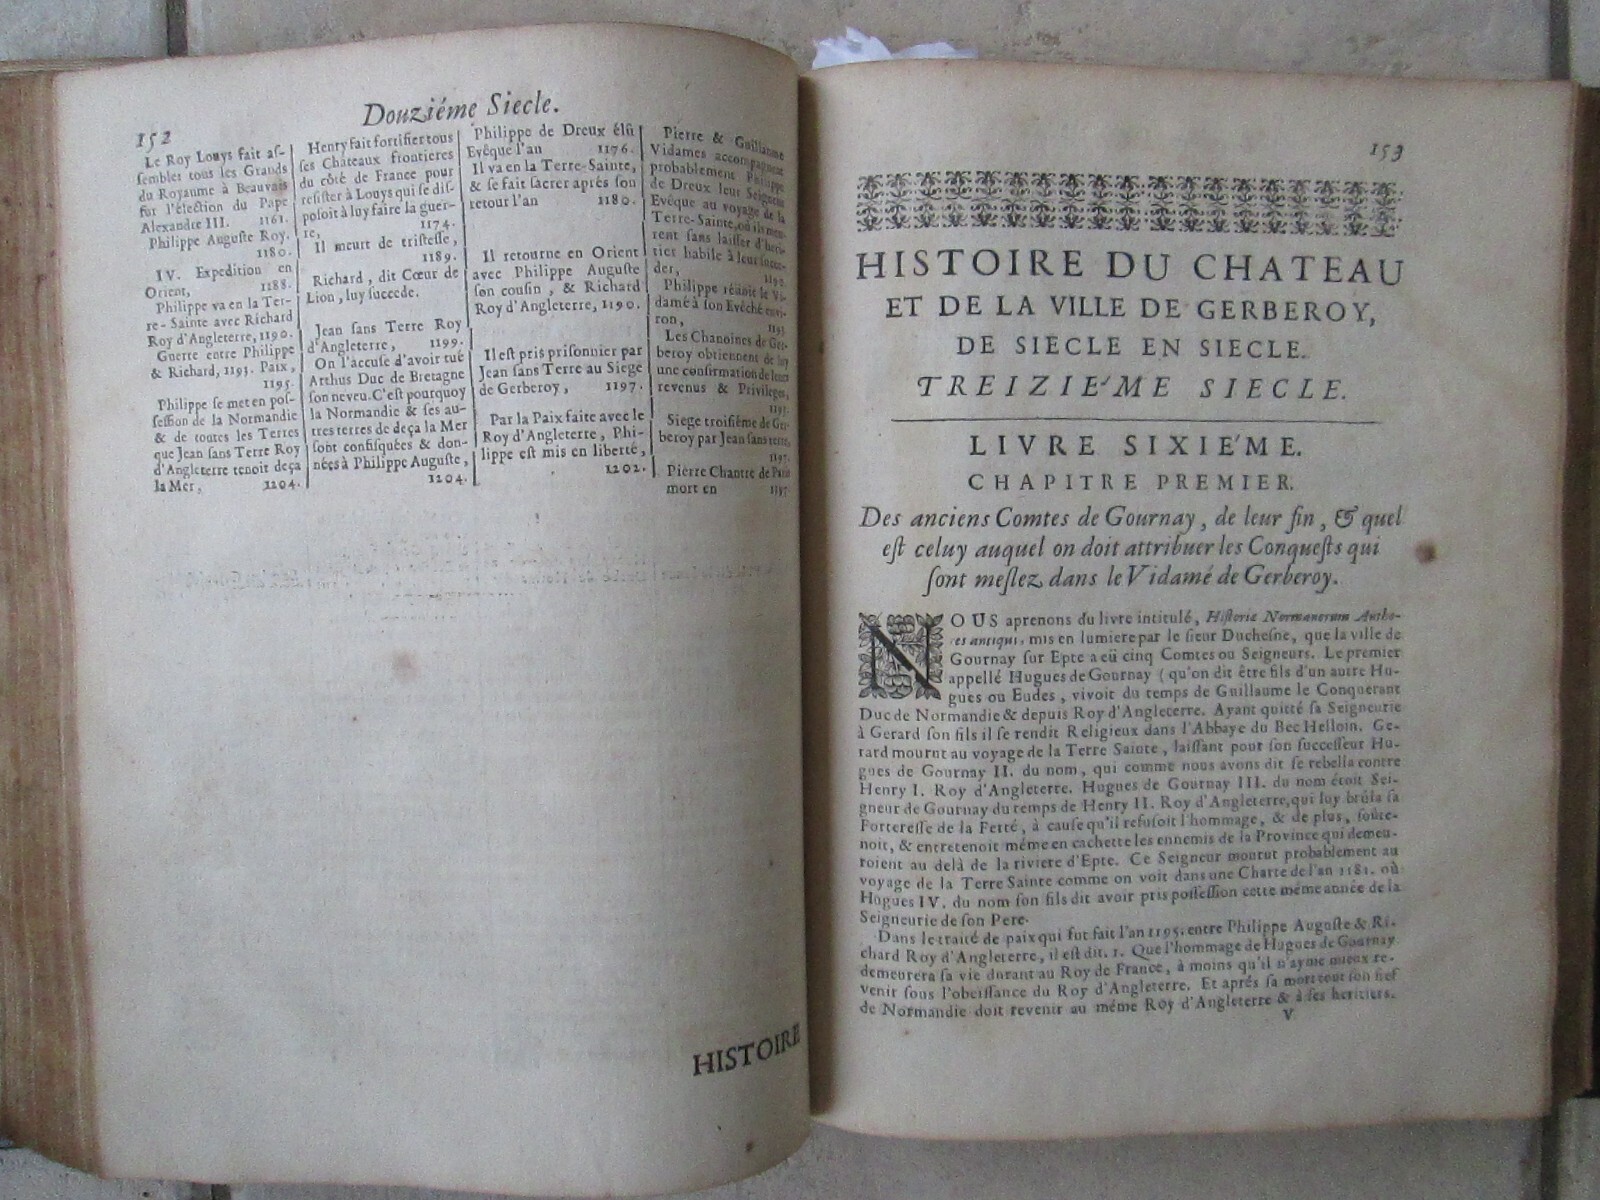 152
Douziéme Siecle.
Le Roy Louys fait aſ-
ſembler tous les Grands
du Royaume à Beauvais
ſur l'élection du Pape
Alexandre III. 1161.
Philippe Auguſte Roy.
1180.
IV. Expedition en
Orient, 1188.
Philippe va en la Ter-
re-Sainte avec Richard
Roy d'Angleterre, 1190.
Guerre entre Philippe
& Richard, 1193. Paix,
1195.
Philippe ſe met en poſ-
ſeſſion de la Normandie
& de toutes les Terres
que Jean ſans Terre Roy
d'Angleterre tenoit deça
la Mer, 1204.
Henry fait fortifier tous
ſes Châteaux frontieres
du côté de France pour
reſiſter à Louys qui ſe diſ-
poſoit à luy faire la guer-
re, 1174.
Il meurt de triſteſſe,
1189.
Richard, dit Cœur de
Lion, luy ſuccede.
Jean ſans Terre Roy
d'Angleterre, 1199.
On l'accuſe d'avoir tué
Arthus Duc de Bretagne
ſon neveu. C'eſt pourquoy
la Normandie & ſes au-
tres terres de deça la Mer
ſont confiſquées & don-
nées à Philippe Auguſte,
1204.
Philippe de Dreux élû
Evêque l'an 1176.
Il va en la Terre-Sainte,
& ſe fait ſacrer aprés ſon
retour l'an 1180.
Il retourne en Orient
avec Philippe Auguſte
ſon couſin, & Richard
Roy d'Angleterre, 1190.
Il eſt pris priſonnier par
Jean ſans Terre au Siege
de Gerberoy, 1197.
Par la Paix faite avec le
Roy d'Angleterre, Phi-
lippe eſt mis en liberté,
1202.
Pierre & Guillaume
Vidames accompagnent
probablement Philippe
de Dreux leur Seigneur
Evêque au voyage de la
Terre-Sainte, où ils meu-
rent ſans laiſſer d'heri-
tier habile à leur ſucce-
der, 1190.
Philippe réünit le Vi-
damé à ſon Evêché envi-
ron, 1193.
Les Chanoines de Ger-
beroy obtiennent de luy
une confirmation de leurs
revenus & Privileges,
1197.
Siege troiſiéme de Ger-
beroy par Jean ſans terre,
1197.
Pierre Chantre de Paris
mort en 1197.
HISTOIRE
153
HISTOIRE DU CHATEAU
ET DE LA VILLE DE GERBEROY,
DE SIECLE EN SIECLE.
TREIZIE'ME SIECLE.
LIVRE SIXIE'ME.
CHAPITRE PREMIER.
Des anciens Comtes de Gournay, de leur fin, & quel
eſt celuy auquel on doit attribuer les Conqueſts qui
ſont meſlez dans le Vidamé de Gerberoy.
NOUS aprenons du livre intitulé, Hiſtoria Normanorum Autho-
res antiqui, mis en lumiere par le ſieur Ducheſne, que la ville de
Gournay ſur Epte a eü cinq Comtes ou Seigneurs. Le premier
appellé Hugues de Gournay (qu'on dit être fils d'un autre Hu-
gues ou Eudes, vivoit du temps de Guillaume le Conquerant
Duc de Normandie & depuis Roy d'Angleterre. Ayant quitté ſa Seigneurie
à Gerard ſon fils il ſe rendit Religieux dans l'Abbaye du Bec Helloin. Ge-
rard mourut au voyage de la Terre Sainte, laiſſant pour ſon ſucceſſeur Hu-
gues de Gournay II. du nom, qui comme nous avons dit ſe rebella contre
Henry I. Roy d'Angleterre. Hugues de Gournay III. du nom étoit Sei-
gneur de Gournay du temps de Henry II. Roy d'Angleterre, qui luy brûla ſa
Fortereſſe de la Ferté, à cauſe qu'il refuſoit l'hommage, & de plus, ſoûte-
noit, & entretenoit méme en cachette les ennemis de la Province qui demeu-
roient au delà de la riviere d'Epte. Ce Seigneur mourut probablement au
voyage de la Terre Sainte comme on voit dans une Charte de l'an 1181. où
Hugues IV. du nom ſon fils dit avoir pris poſſeſſion cette méme année de la
Seigneurie de ſon Pere.
Dans le traité de paix qui fut fait l'an 1195. entre Philippe Auguſte & Ri-
chard Roy d'Angleterre, il eſt dit. 1. Que l'hommage de Hugues de Gournay
demeurera ſa vie durant au Roy de France, à moins qu'il n'ayme mieux re-
venir ſous l'obeiſſance du Roy d'Angleterre. Et aprés ſa mort tout ſon fief
de Normandie doit revenir au méme Roy d'Angleterre & à ſes heritiers.
V